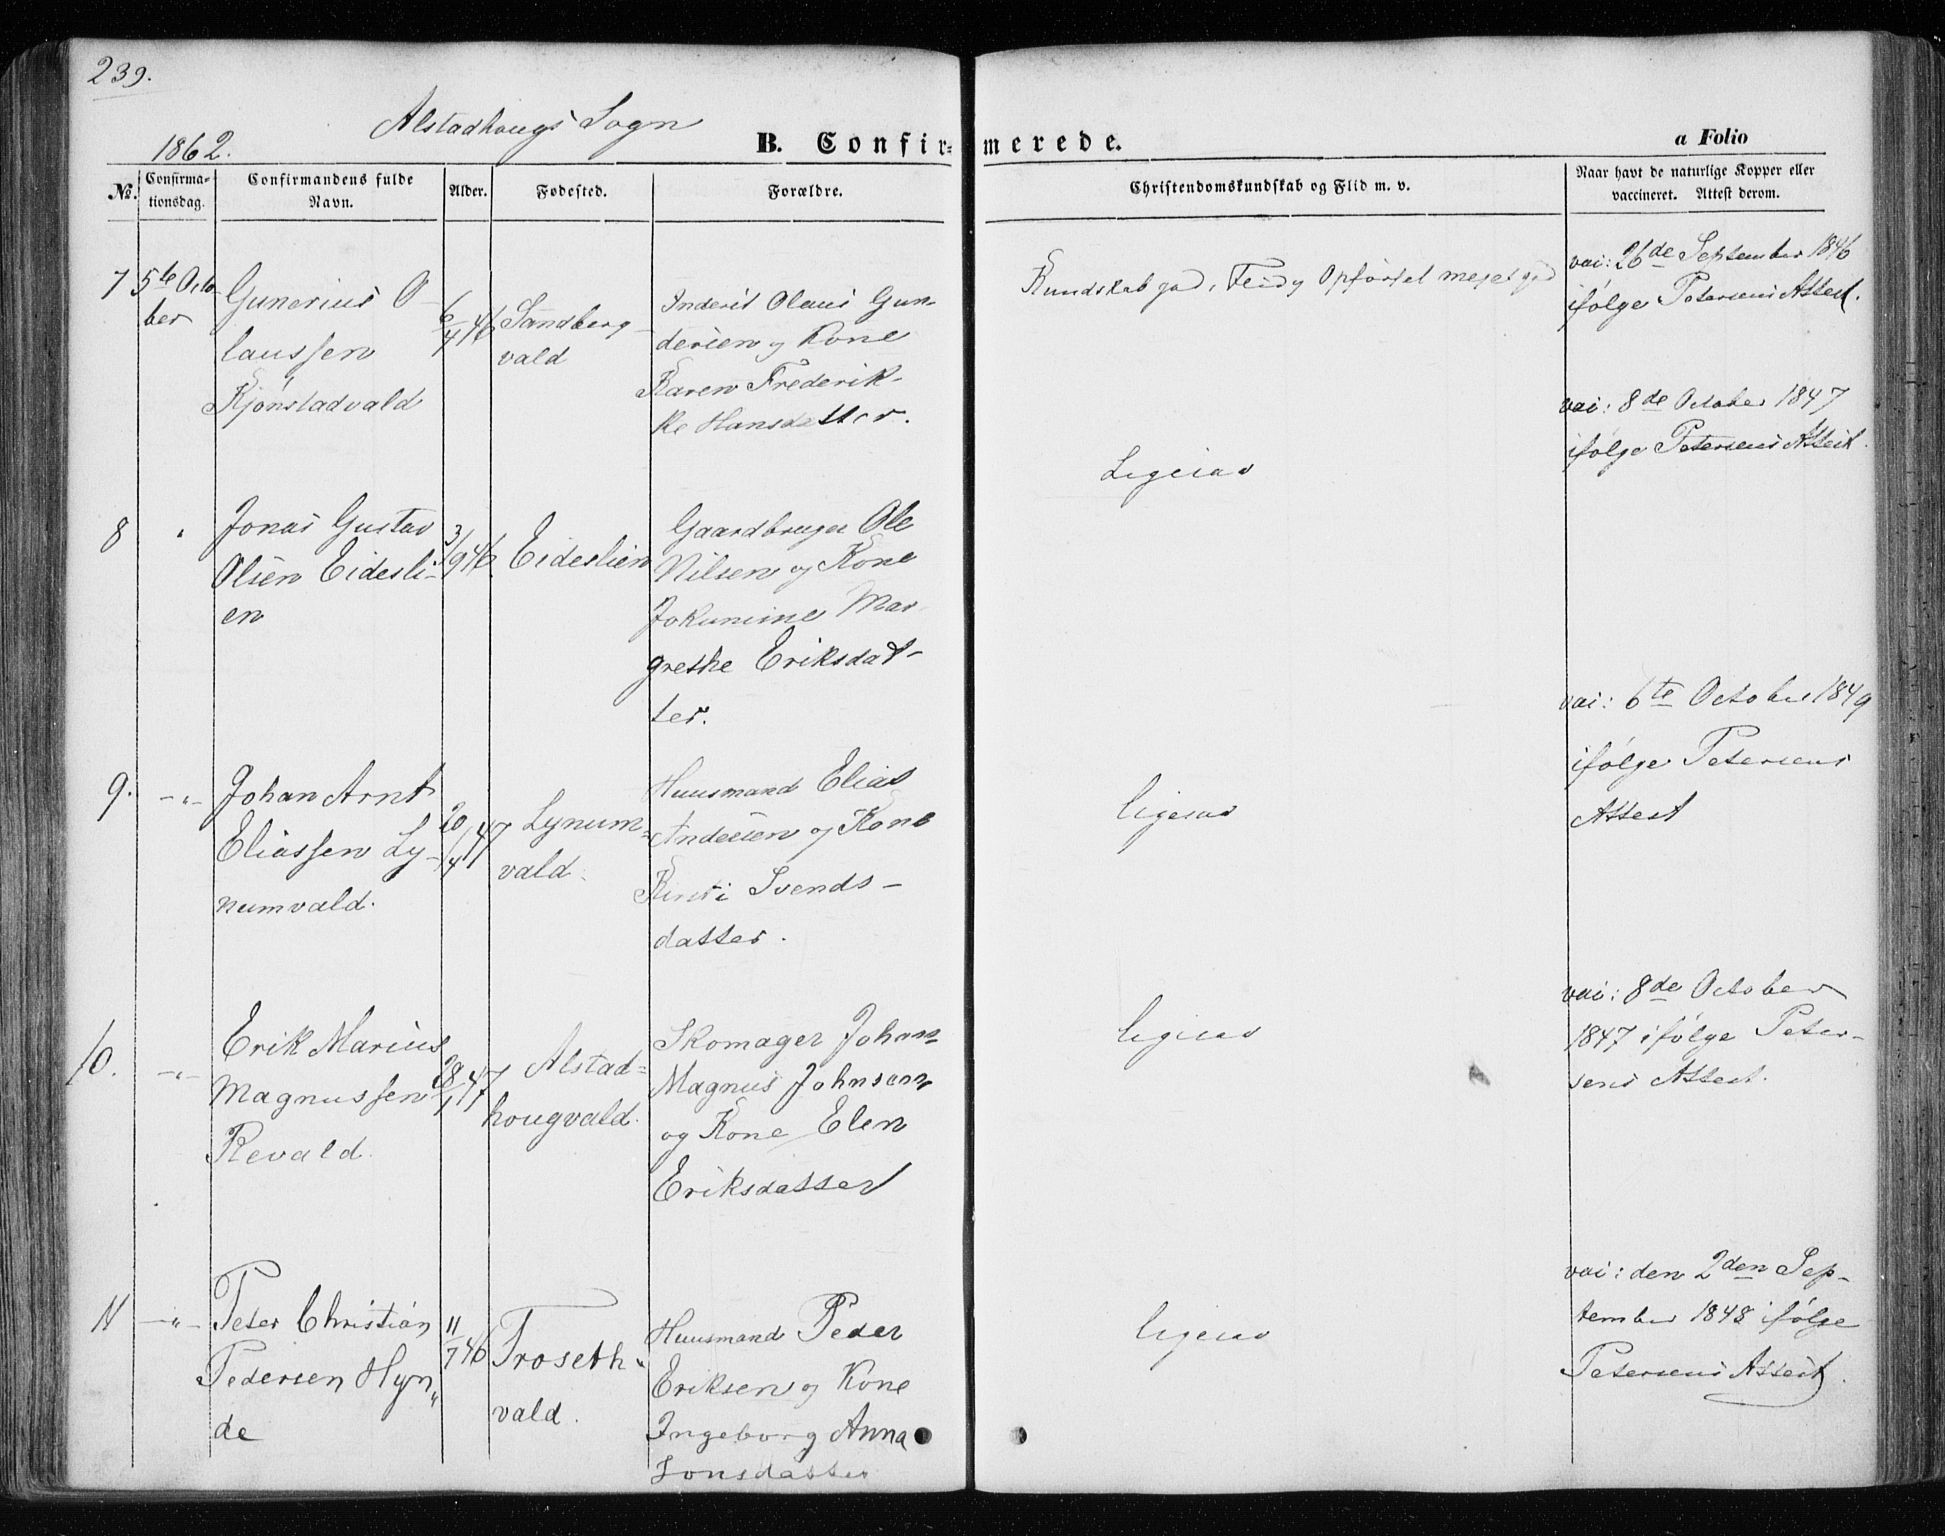 239.
Alstadhougs Sogn
1862.
B. Confirmerede.
a Folio
No. Confirmationsdag. Confirmandens fulde Navn. Alder. Fødested. Forældre. Christendomskundskab og Flid m. v. Naar havt de naturlige Kopper eller vaccineret. Attest derom.
7 5te October
Gunerius O-
laussen
Kjønstadvald
6/4 46
Sandberg
vald
Inderst Olaus Gun-
dersen og Kone
Karen Frederik-
ke Hansdatter.
Kundskab god, Flid og Opførsel meget god
vai: 26de September 1846
ifølge Petersens Attest.
8 "
Jonas Gustav
Olsen Eidesli-
en
3/9 46
Eideslien
Gaardbruger Ole
Nilsen og Kone
Jokumine Mar
grethe Eriksdat-
ter.
Ligesaa
vai: 8de October 1847
ifølge Petersens Attest.
9. -"-
Johan Arnt
Eliassen Ly-
numvald.
20/4 47
Lynum=
vald.
Huusmand Elias
Andersen og Kone
Kirsti Svends-
datter.
ligesaa
vai: 6te October 1849
ifølge Petersens
Attest
10. -"-
Erik Marius
Magnussen
Revald.
28/1 47
Alstad=
hougvald.
Skomager Johan
Magnus Johnsen
og Kone Elen
Eriksdatter
ligesaa
vai: 8de October
1847 ifølge Peter-
sens Attest.
11 -"-
Peter Christian
Pedersen Hyn"
de
11/7 46
Troseth"
vald.
Huusmand Peder
Eriksen og Kone
Ingeborg Anna
Jonsdatter
ligesaa
vai: den 2den Sep-
tember 1848 ifølge
Petersens Attest.